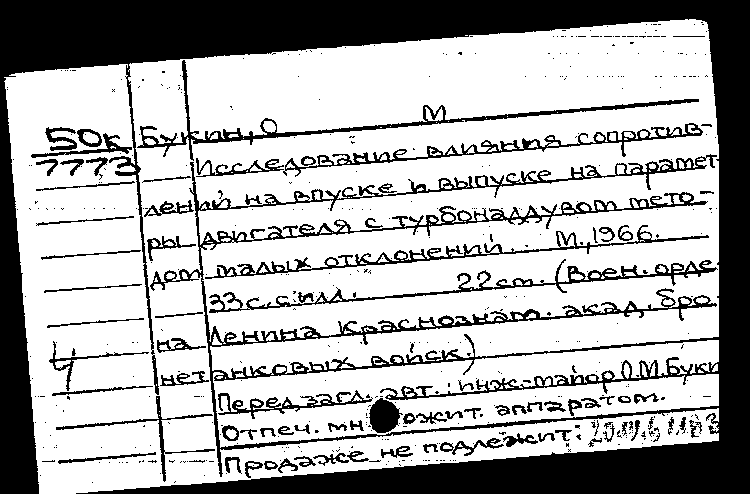 50к Букин, О М
7773 Исследование влияния сопротив-
лений на впуске и выпуске на парамет-
ры двигателя с турбонаддувом мето-
дом малых отклонений. М., 1966.
33 с. с илл. 22 см. (Воен. орде-
на Ленина Краснознам. акад. бро-
нетанковых войск.)
4
Перед загл. авт.: инж-майор О.М. Букин
Отпеч. множит. аппаратом.
Продаже не подлежит: